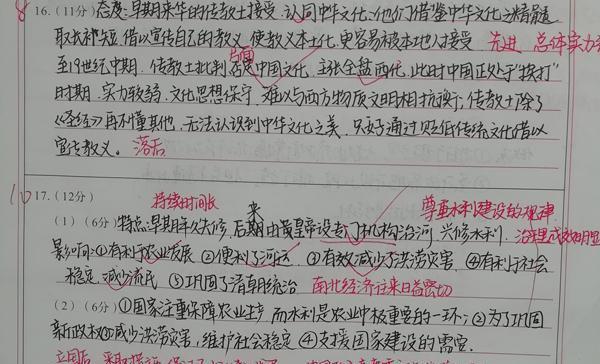 8
16.(11分)态度:早期来华的传教士接受、认同中华文化,他们借鉴中华文化之精髓
取长补短,借以宣传自己的教义,使教义本土化,更容易被本地人接受 先进 总体实力
片面
至19世纪中期,传教士批判否定中国文化,主张全盘西化,此时中国正处于“挨打”
时期,实力较弱,文化思想保守,难以与西方物质文明相抗衡;传教士除了
《圣经》再不懂其他,无法认识到中华文化之美,只好通过贬低传统文化借以
宣传教义。 落后
10
17.(12分)
持续时间长 尊重水利建设的规律
来
(1)(6分)特点:早期年久失修,后期由黄皇帝设专门机构治河,兴修水利, 治理成效明显
影响:①有利于农业发展 ②便利了河运 ③有效减少了洪涝灾害 ④有利于社会
稳定,减少流民 ⑤巩固了清朝统治 南北经济往来日益密切
(2)(6分)①国家注重保障农业生产,而水利是农业中极重要的一环;②为了巩固
新政权③减少洪涝灾害,维护社会稳定 ④支援国家建设的需要.
立国后